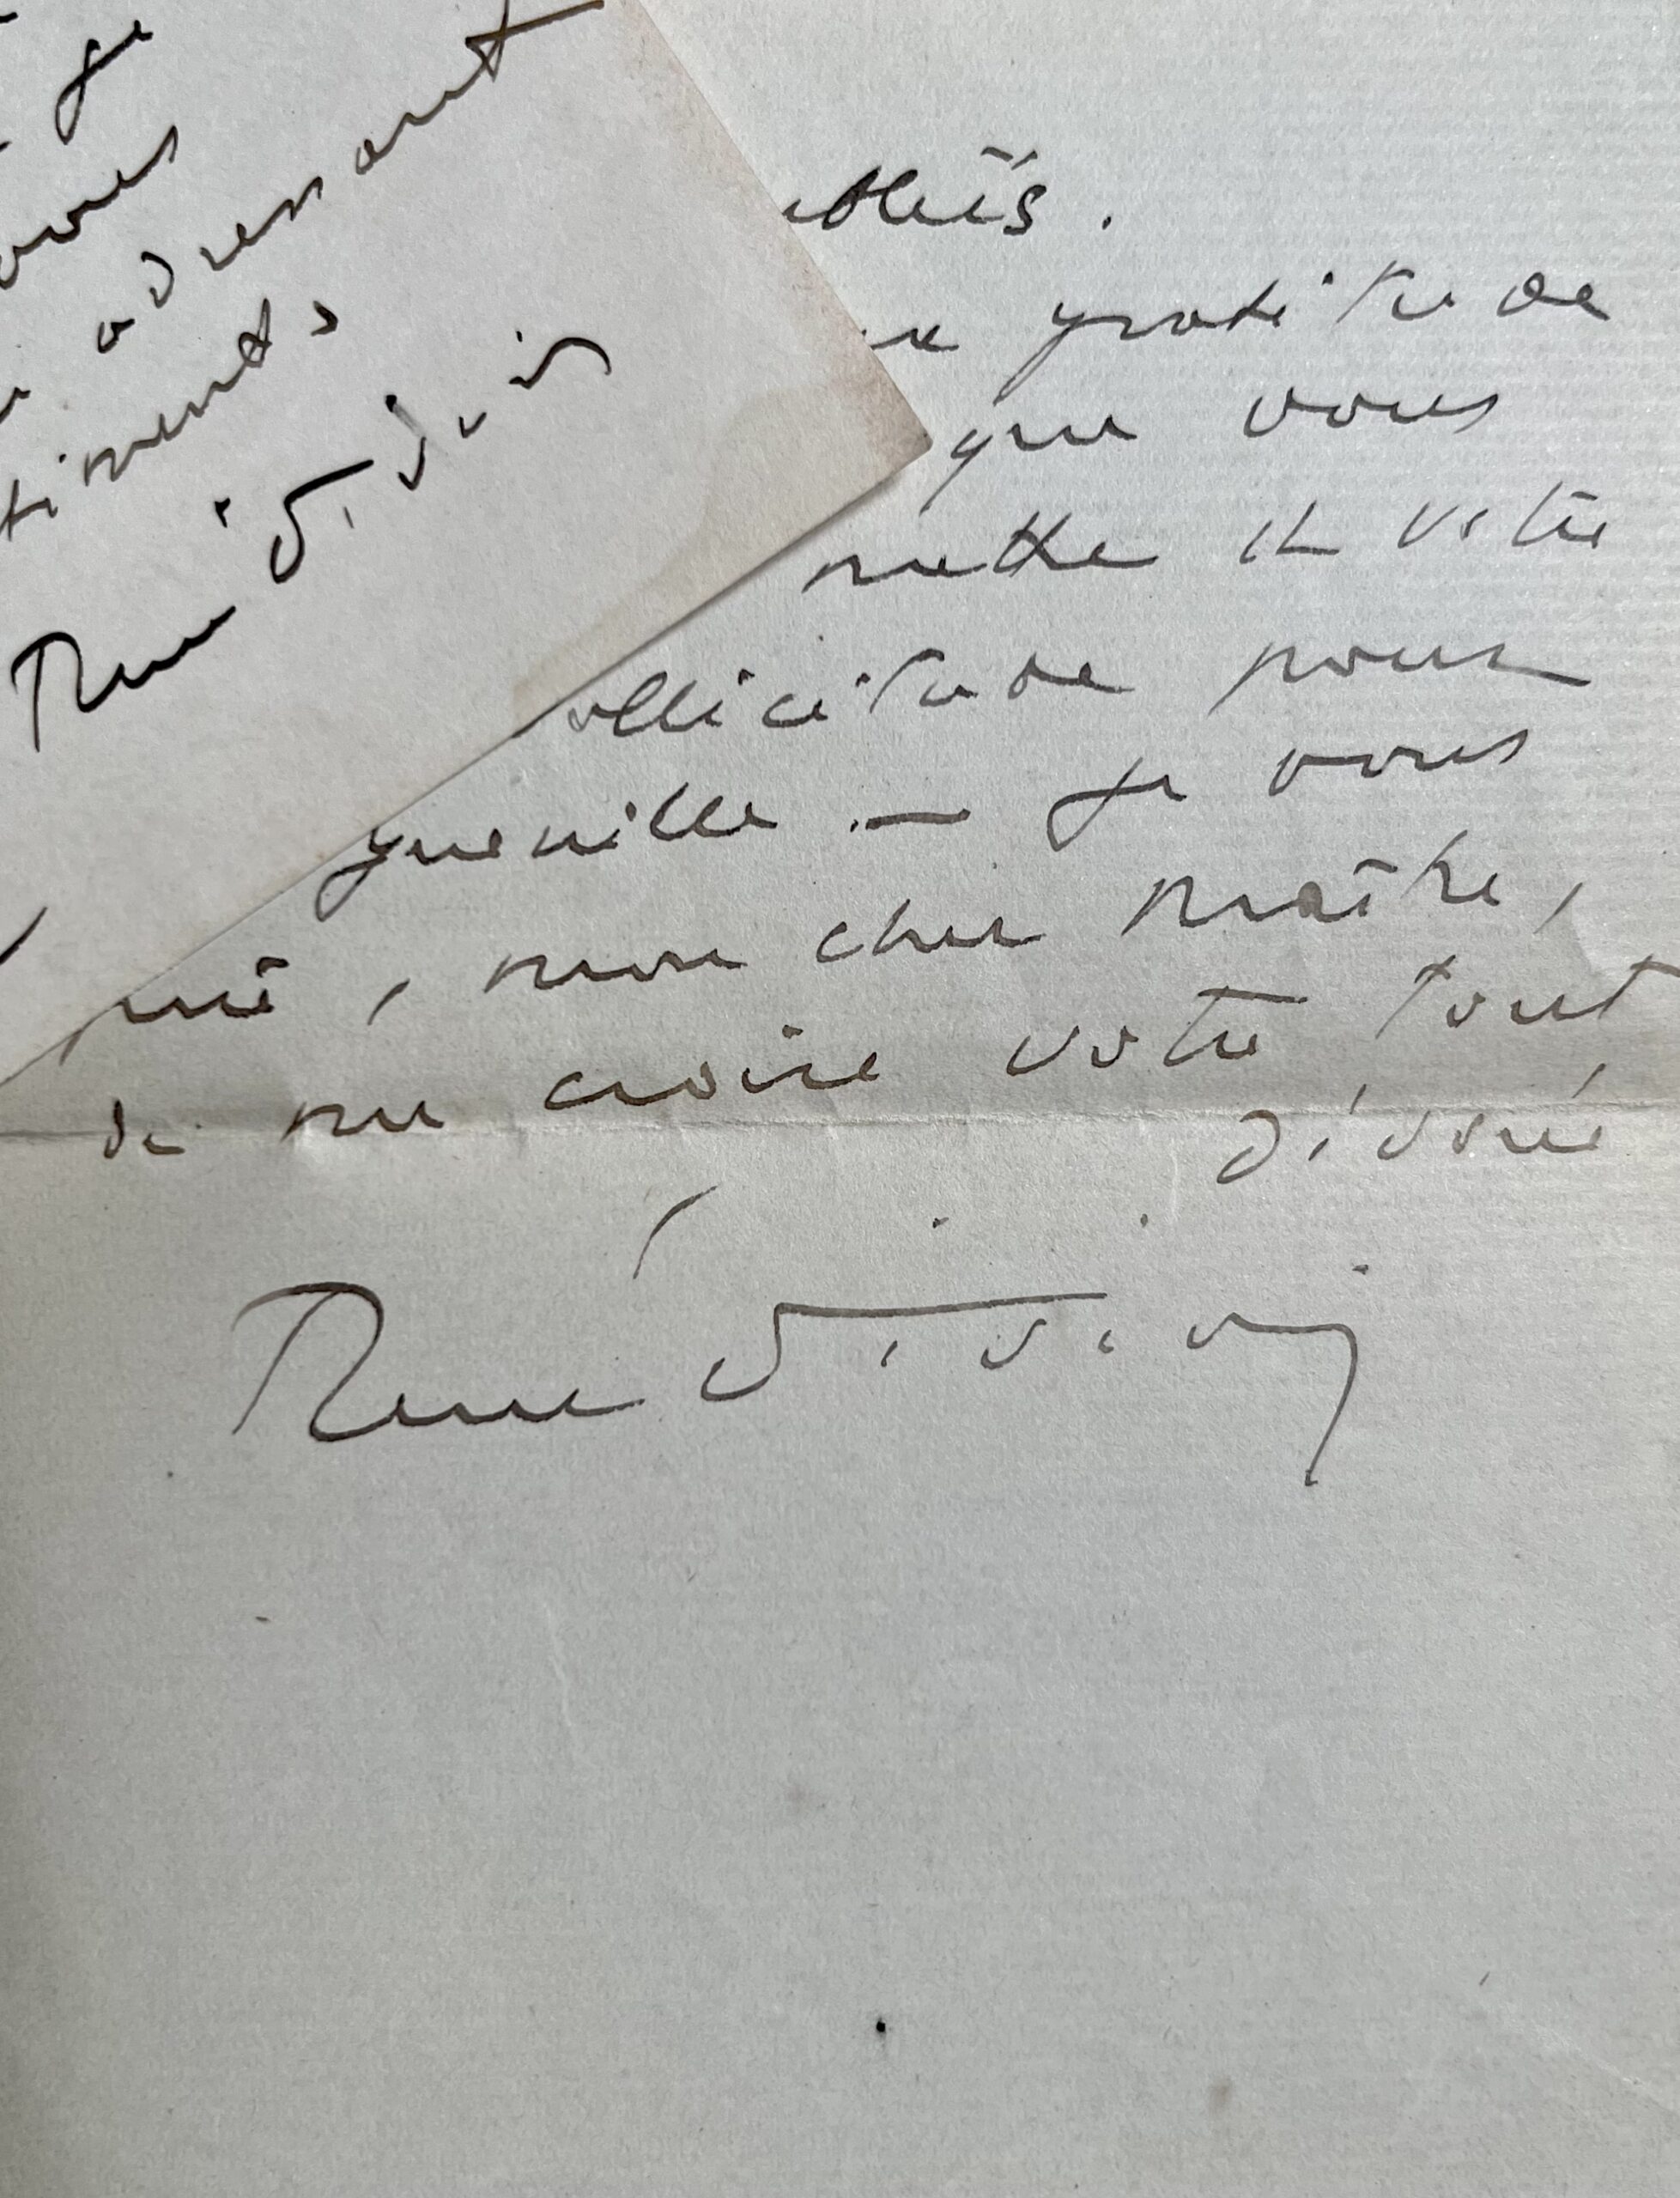 je
vous
adressant
timents
René Vivien
ubliés.
gratitude
que vous
mette et votre
ollicitude pour
guenille. — Je vous
prie, mon cher Maître,
de me croire votre tout
dévoué
Renée Vivien